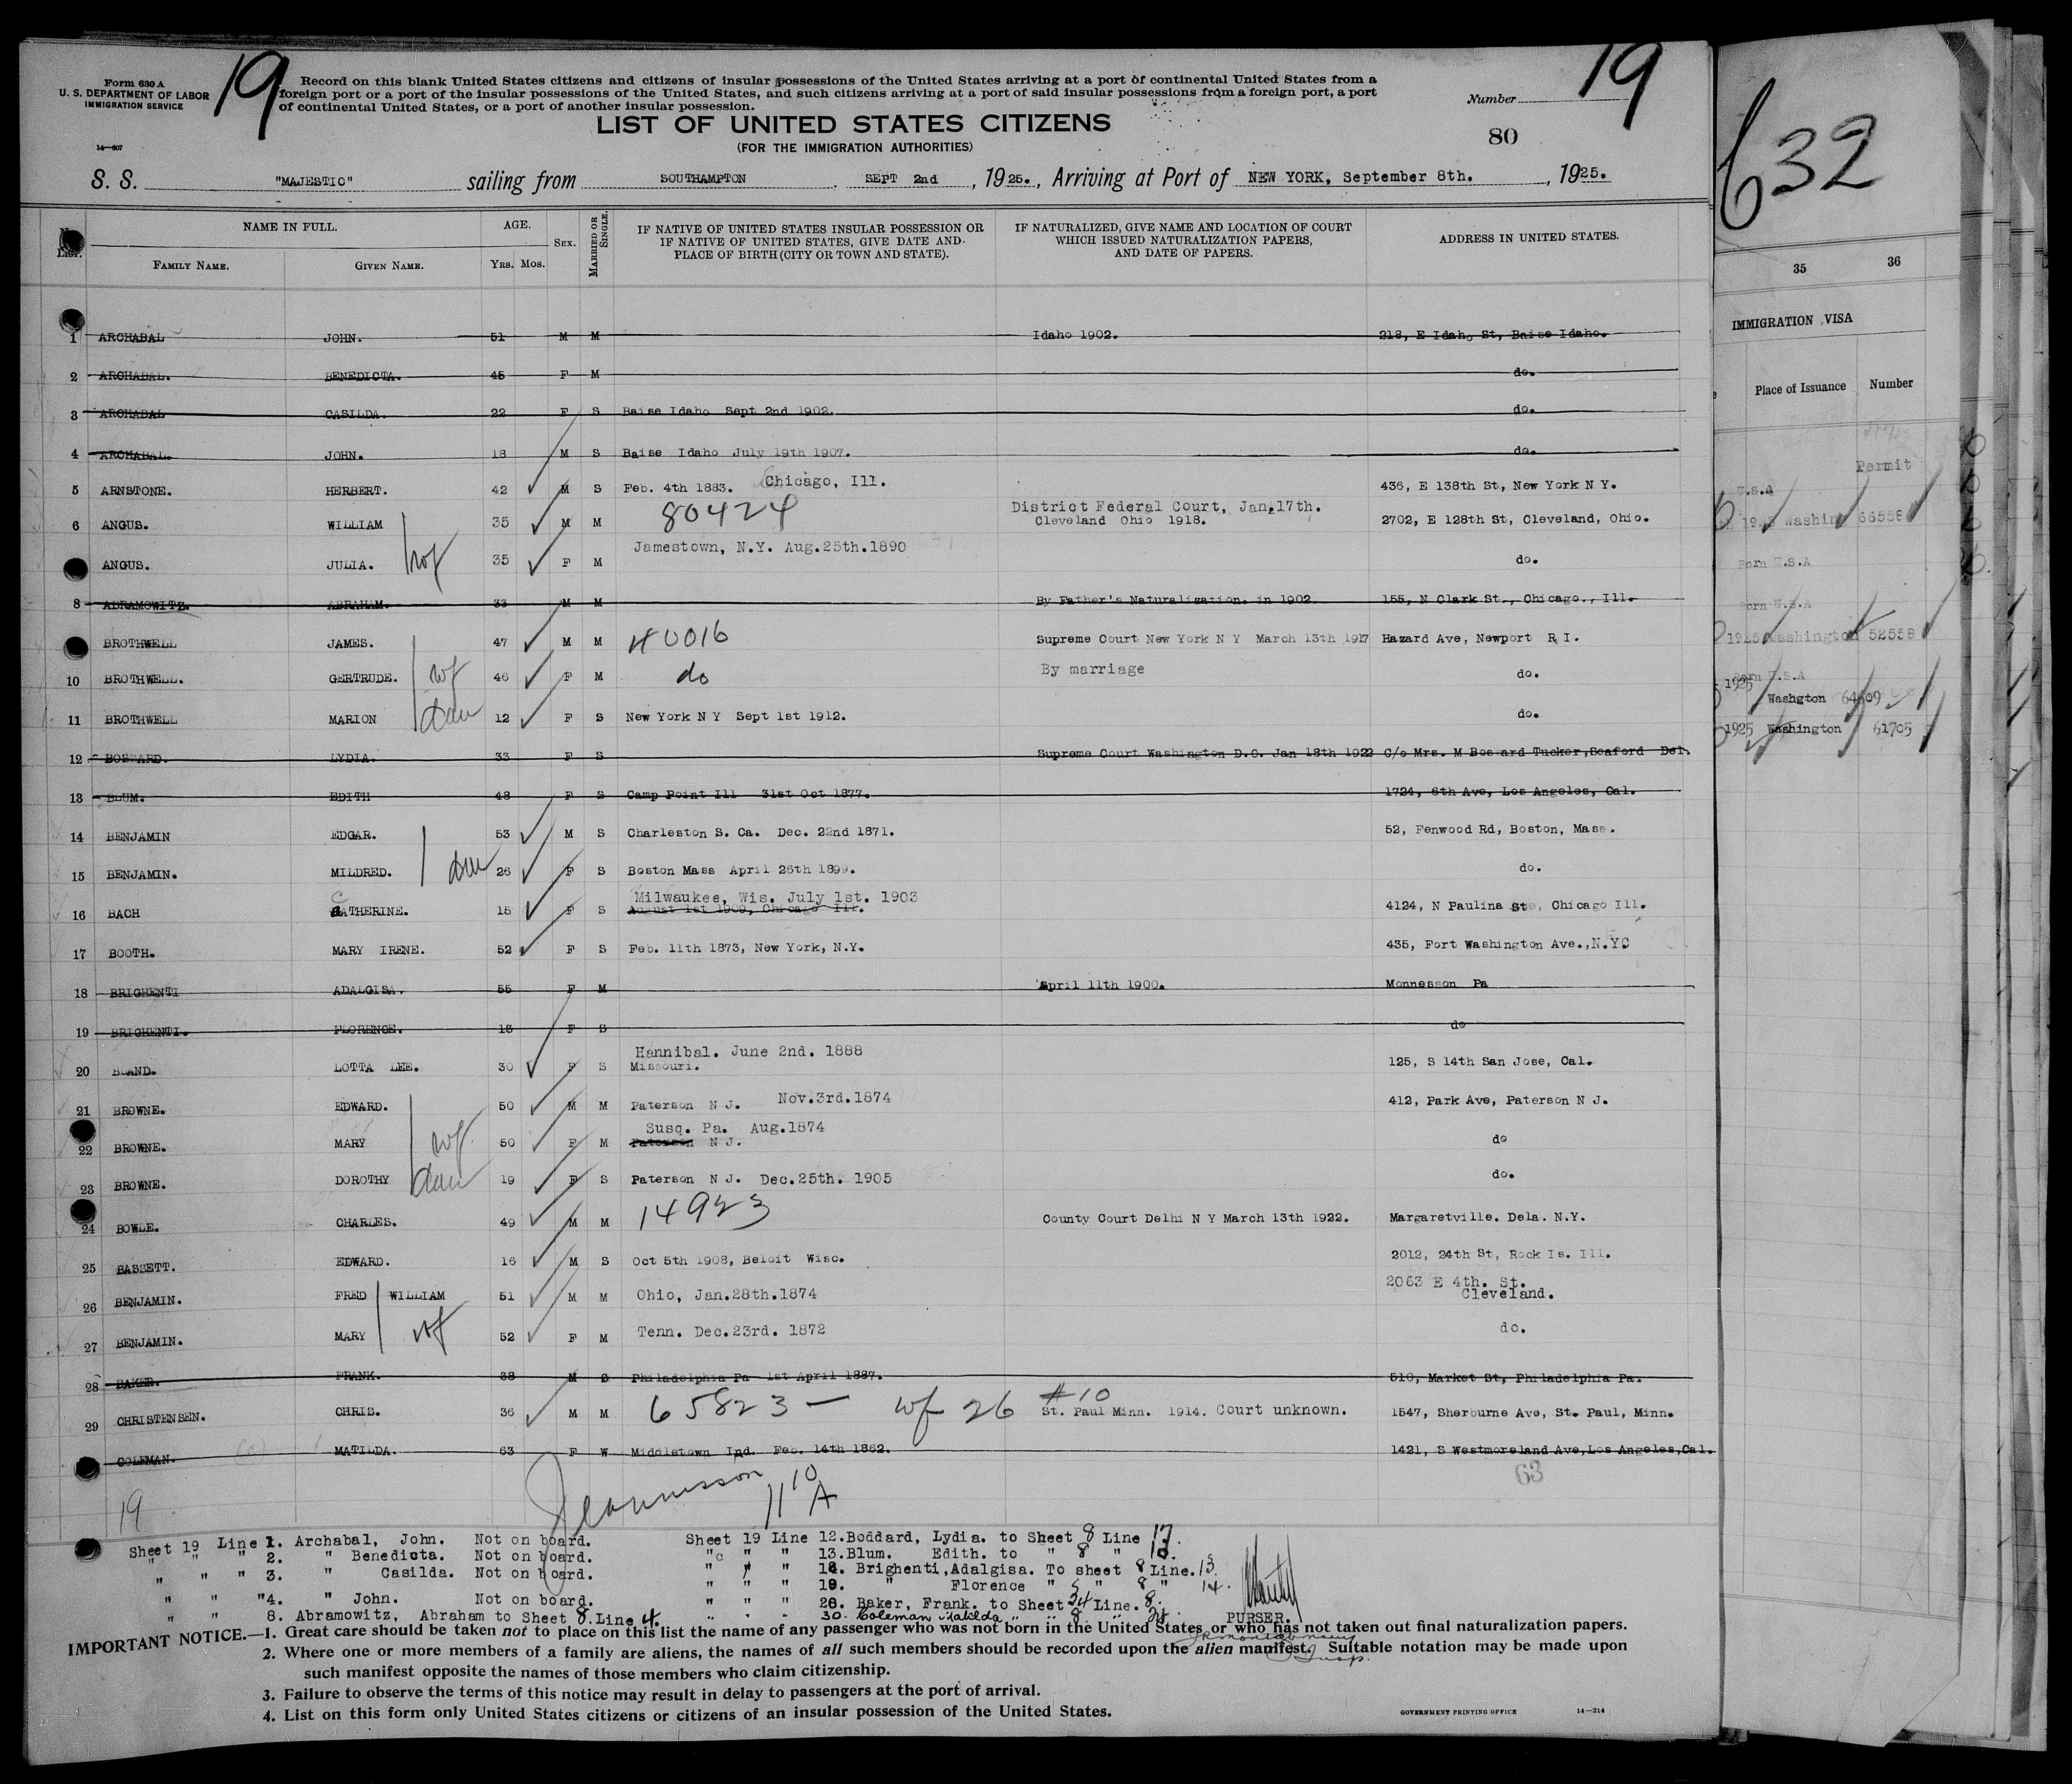 Form 630 A
U. S. DEPARTMENT OF LABOR
IMMIGRATION SERVICE
14—607
19
Record on this blank United States citizens and citizens of insular possessions of the United States arriving at a port of continental United States from a
foreign port or a port of the insular possessions of the United States, and such citizens arriving at a port of said insular possessions from a foreign port, a port
of continental United States, or a port of another insular possession.
Number 19
80
LIST OF UNITED STATES CITIZENS
(FOR THE IMMIGRATION AUTHORITIES)
S. S. "MAJESTIC" sailing from SOUTHAMPTON. SEPT 2nd, 1925., Arriving at Port of NEW YORK, September 8th., 1925.
NAME IN FULL. AGE. SEX. MARRIED OR SINGLE. IF NATIVE OF UNITED STATES INSULAR POSSESSION OR IF NATIVE OF UNITED STATES, GIVE DATE AND PLACE OF BIRTH (CITY OR TOWN AND STATE). IF NATURALIZED, GIVE NAME AND LOCATION OF COURT WHICH ISSUED NATURALIZATION PAPERS, AND DATE OF PAPERS. ADDRESS IN UNITED STATES.
FAMILY NAME. GIVEN NAME. YRS. MOS.
1 ARCHABAL JOHN. 51 M M Idaho 1902. 218, E Idaho St, Baise Idaho.
2 ARCHABAL. BENEDICTA. 45 F M do.
3 ARCHABAL CASILDA. 22 F S Baise Idaho Sept 2nd 1902. do.
4 ARCHABAL. JOHN. 18 M S Baise Idaho July 19th 1907. do.
5 ARNSTONE. HERBERT. 42 M S Feb. 4th 1883. Chicago, Ill. 436, E 138th St, New York N Y.
6 ANGUS. WILLIAM 35 M M 80424 District Federal Court, Jan,17th. Cleveland Ohio 1918. 2702, E 128th St, Cleveland, Ohio.
ANGUS. JULIA. wf 35 F M Jamestown, N.Y. Aug.25th.1890 do.
8 ABRAMOWITZ. ABRAHAM. 33 M M By Father's Naturalization. in 1902. 155, N Clark St., Chicago., Ill.
BROTHWELL JAMES. 47 M M 40016 Supreme Court New York N Y March 13th 1917 Hazard Ave, Newport R I.
10 BROTHWELL. GERTRUDE. wf 46 F M do By marriage do.
11 BROTHWELL MARION dau 12 F S New York N Y Sept 1st 1912. do.
12 BOSSARD. LYDIA. 33 F S Supreme Court Washington D.C. Jan 18th 1922 C/o Mrs. M Bossard Tucker,Seaford Del.
13 BLUM. EDITH 48 F S Camp Point Ill 31st Oct 1877. 1724, 6th Ave, Los Angeles, Cal.
14 BENJAMIN EDGAR. 53 M S Charleston S. Ca. Dec. 22nd 1871. 52, Fenwood Rd, Boston, Mass.
15 BENJAMIN. MILDRED. dau 26 F S Boston Mass April 26th 1899. do.
16 BACH CATHERINE. 15 F S Milwaukee, Wis. July 1st. 1903 August 1st 1909, Chicago Ill. 4124, N Paulina St, Chicago Ill.
17 BOOTH. MARY IRENE. 52 F S Feb. 11th 1873, New York, N.Y. 435, Fort Washington Ave.,N.YC
18 BRIGHENTI ADALGISA. 55 F M April 11th 1900. Monnesson Pa
19 BRIGHENTI. FLORENCE. 13 F S do
20 BLAND. LOTTA LEE. 30 F S Hannibal. June 2nd. 1888 Missouri. 125, S 14th San Jose, Cal.
21 BROWNE. EDWARD. 50 M M Paterson N J. Nov.3rd.1874 412, Park Ave, Paterson N J.
22 BROWNE. MARY wf 50 F M Susq. Pa. Aug.1874 Paterson N J. do
23 BROWNE. DOROTHY dau 19 F S Paterson N J. Dec.25th. 1905 do.
24 BOWLE. CHARLES. 49 M M 14923 County Court Delhi N Y March 13th 1922. Margaretville. Dela. N.Y.
25 BASSETT. EDWARD. 16 M S Oct 5th 1908, Beloit Wisc. 2012, 24th St, Rock Is. Ill.
26 BENJAMIN. FRED WILLIAM 51 M M Ohio, Jan.28th.1874 2063 E 4th. St. Cleveland.
27 BENJAMIN. MARY wf 52 F M Tenn. Dec.23rd. 1872 do.
28 BAKER. FRANK. 38 M S Philadelphia Pa 1st April 1887. 510, Market St, Philadelphia Pa.
29 CHRISTENSEN. CHRIS. 36 M M 65823 — wf 26 #10 St. Paul Minn. 1914. Court unknown. 1547, Sherburne Ave, St. Paul, Minn.
COLEMAN. MATILDA. 63 F W Middletown Ind. Feb. 14th 1862. 1421, S Westmoreland Ave,Los Angeles,Cal.
63
19
Sheet 19 Line 1. Archabal, John. Not on board.
" " " 2. " Benedicta. Not on board.
" " " 3. " Casilda. Not on board.
" " "4. " John. Not on board.
" " 8. Abramowitz, Abraham to Sheet 8. Line 4.
Sheet 19 Line 12.Boddard, Lydia. to Sheet 8 Line 17.
" " " 13.Blum. Edith. to " 8 "
" " " 18. Brighenti,Adalgisa. To sheet 8 Line.13
" " " 19. " Florence " " 8 " 14.
" " " 28. Baker, Frank. to Sheet 34 Line. 8.
" " " 30. Coleman Matilda " " 8
PURSER.
IMPORTANT NOTICE.—1. Great care should be taken not to place on this list the name of any passenger who was not born in the United States or who has not taken out final naturalization papers.
2. Where one or more members of a family are aliens, the names of all such members should be recorded upon the alien manifest. Suitable notation may be made upon
such manifest opposite the names of those members who claim citizenship.
3. Failure to observe the terms of this notice may result in delay to passengers at the port of arrival.
4. List on this form only United States citizens or citizens of an insular possession of the United States.
GOVERNMENT PRINTING OFFICE 14—214
632
35 36
IMMIGRATION VISA
Place of Issuance Number
Permit
U.S.A
Washin 66558
Born U.S.A
Born U.S.A
1925 Washington 52558
Born U.S.A
1925 Washgton 64609
1925 Washington 61705